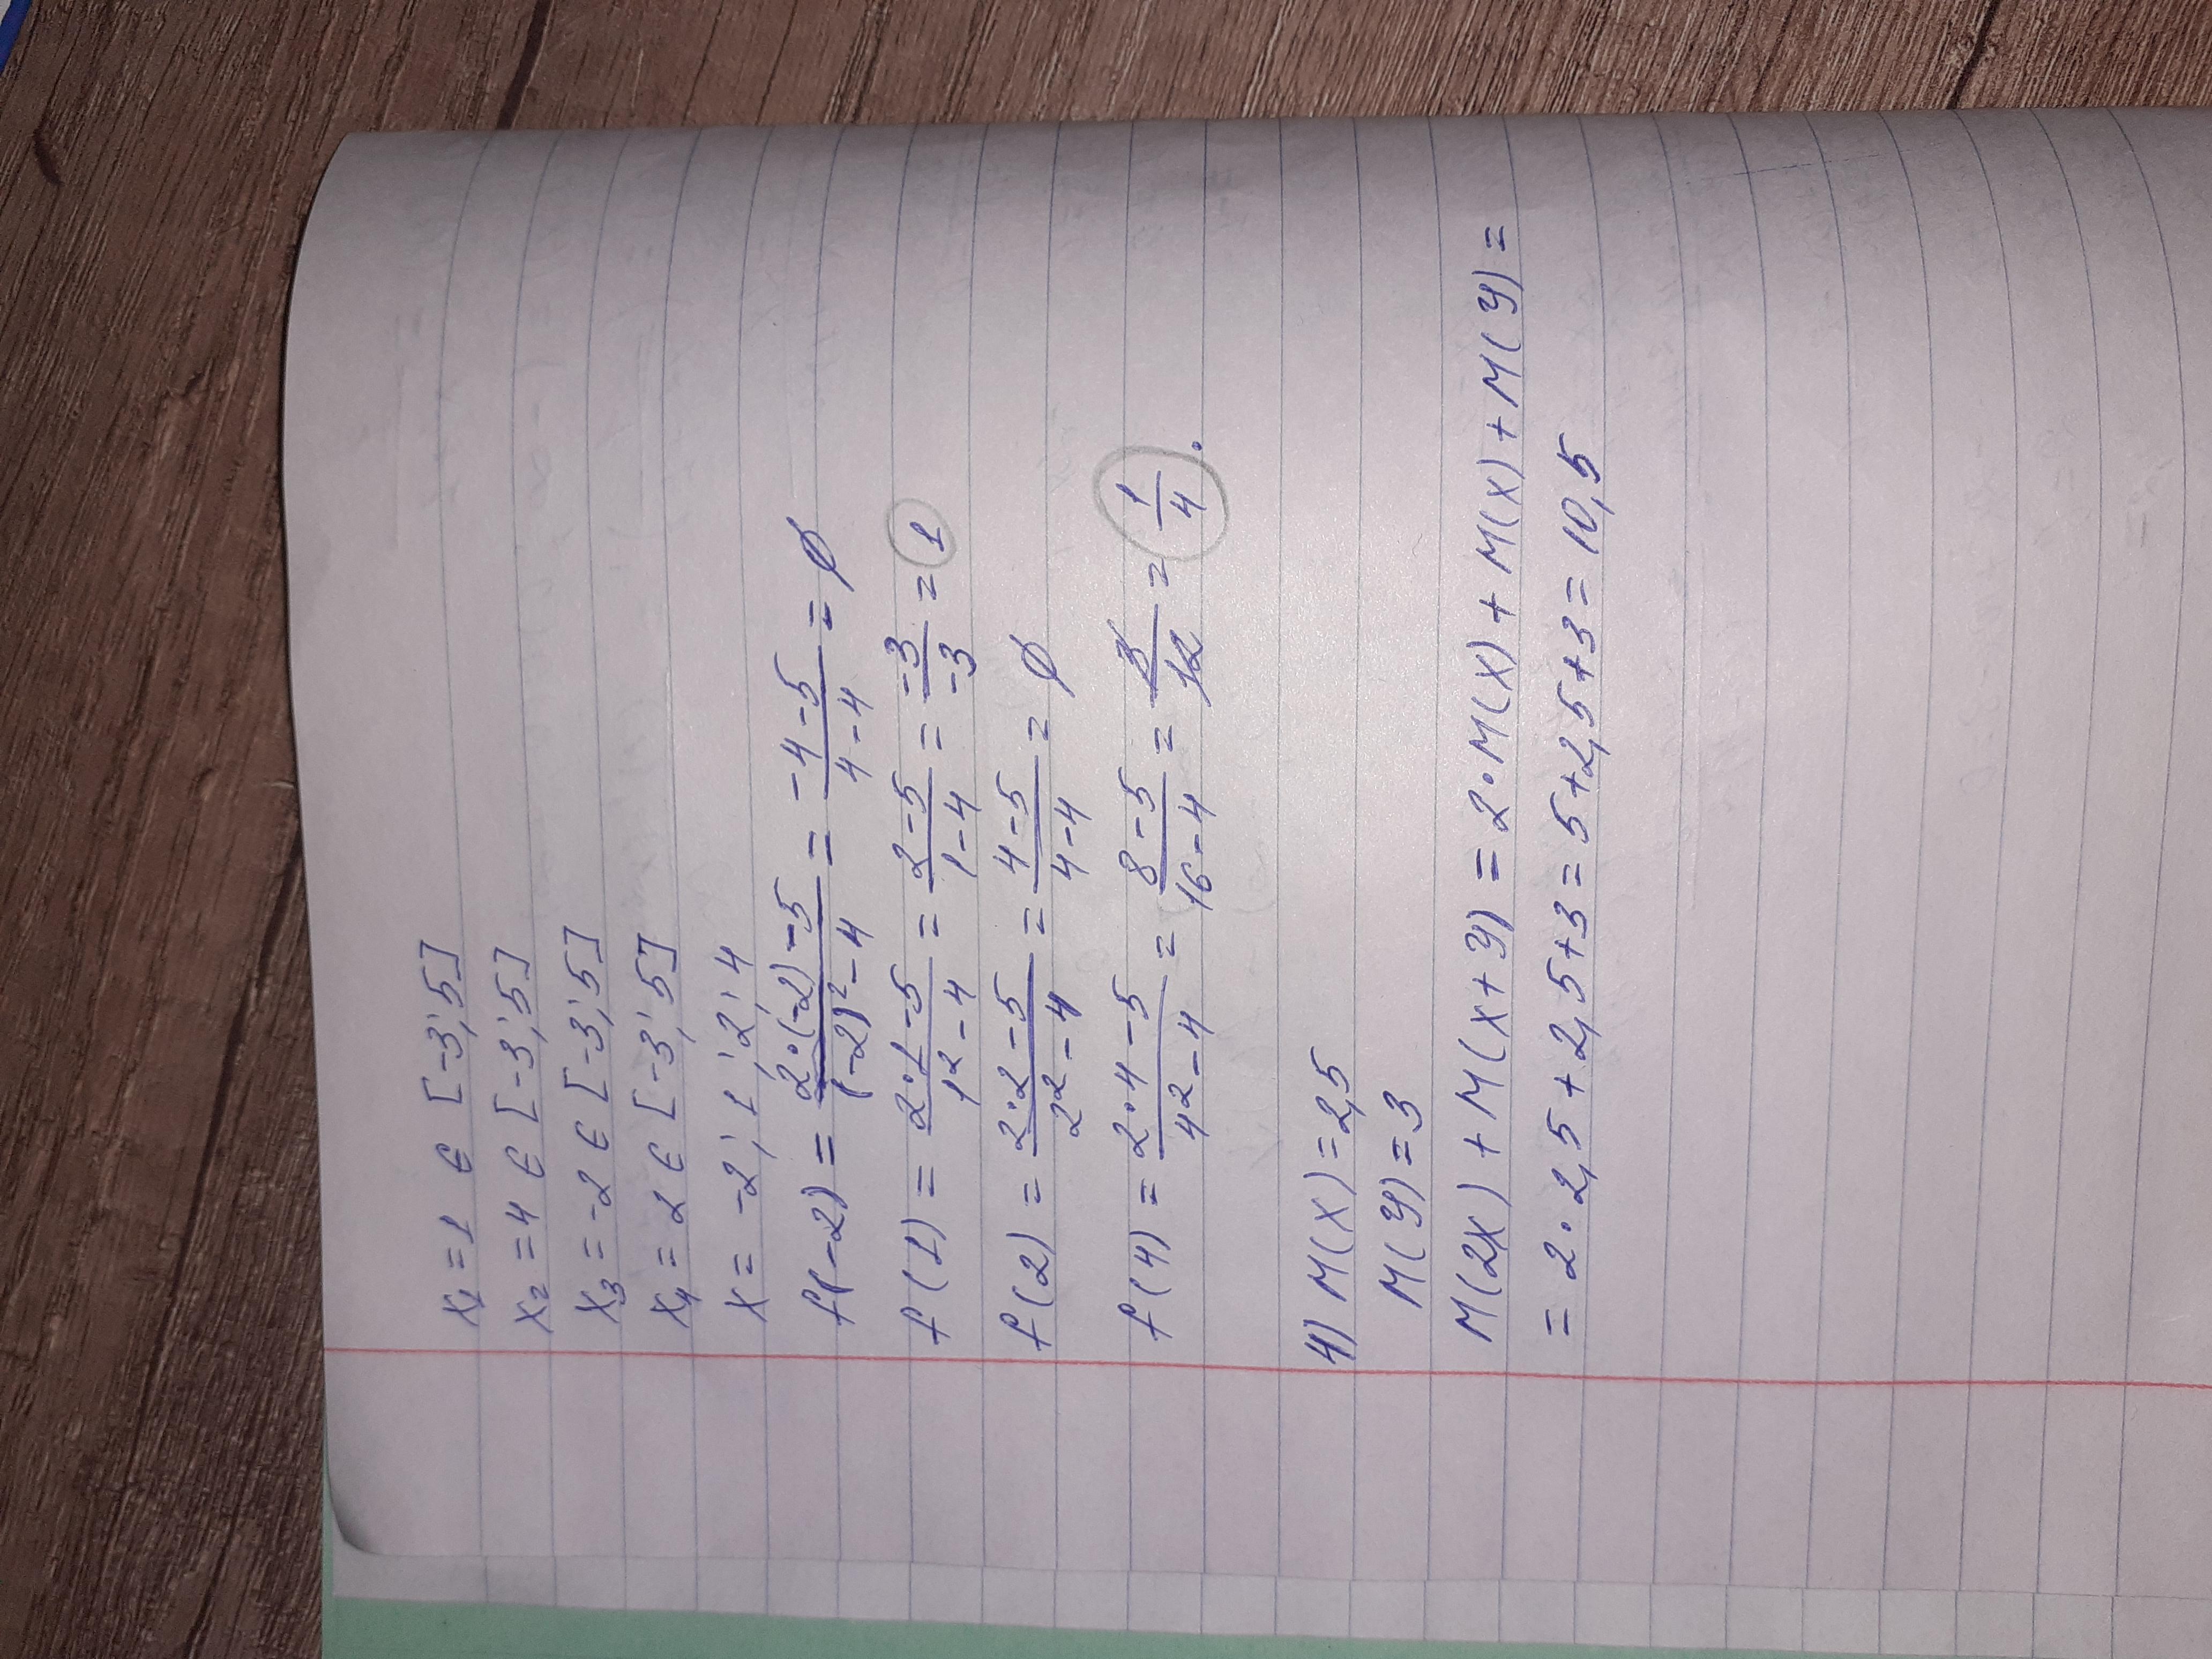 x₁ = 1 ∈ [-3; 5]
x₂ = 4 ∈ [-3; 5]
x₃ = -2 ∈ [-3; 5]
x₄ = 2 ∈ [-3; 5]
x = -2; 1; 2; 4
f(-2) = (2·(-2)-5)/((-2)²-4) = (-4-5)/(4-4) = ∅
f(1) = (2·1-5)/(1²-4) = (2-5)/(1-4) = (-3)/(-3) = 1
f(2) = (2·2-5)/(2²-4) = (4-5)/(4-4) = ∅
f(4) = (2·4-5)/(4²-4) = (8-5)/(16-4) = 3/12 = 1/4.
4) M(x) = 2,5
M(y) = 3
M(2x) + M(x+y) = 2·M(x) + M(x) + M(y) =
= 2·2,5 + 2,5 + 3 = 5 + 2,5 + 3 = 10,5